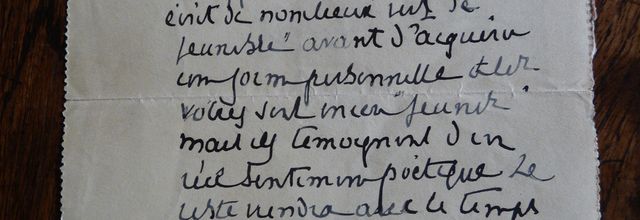 écrit de nombreux vers de
jeunesse" avant d'acquérir
une forme personnelle et les
votres sont encore "jeunes"
mais ils témoignent d'un
réel sentiment poétique Le
reste viendra avec le temps